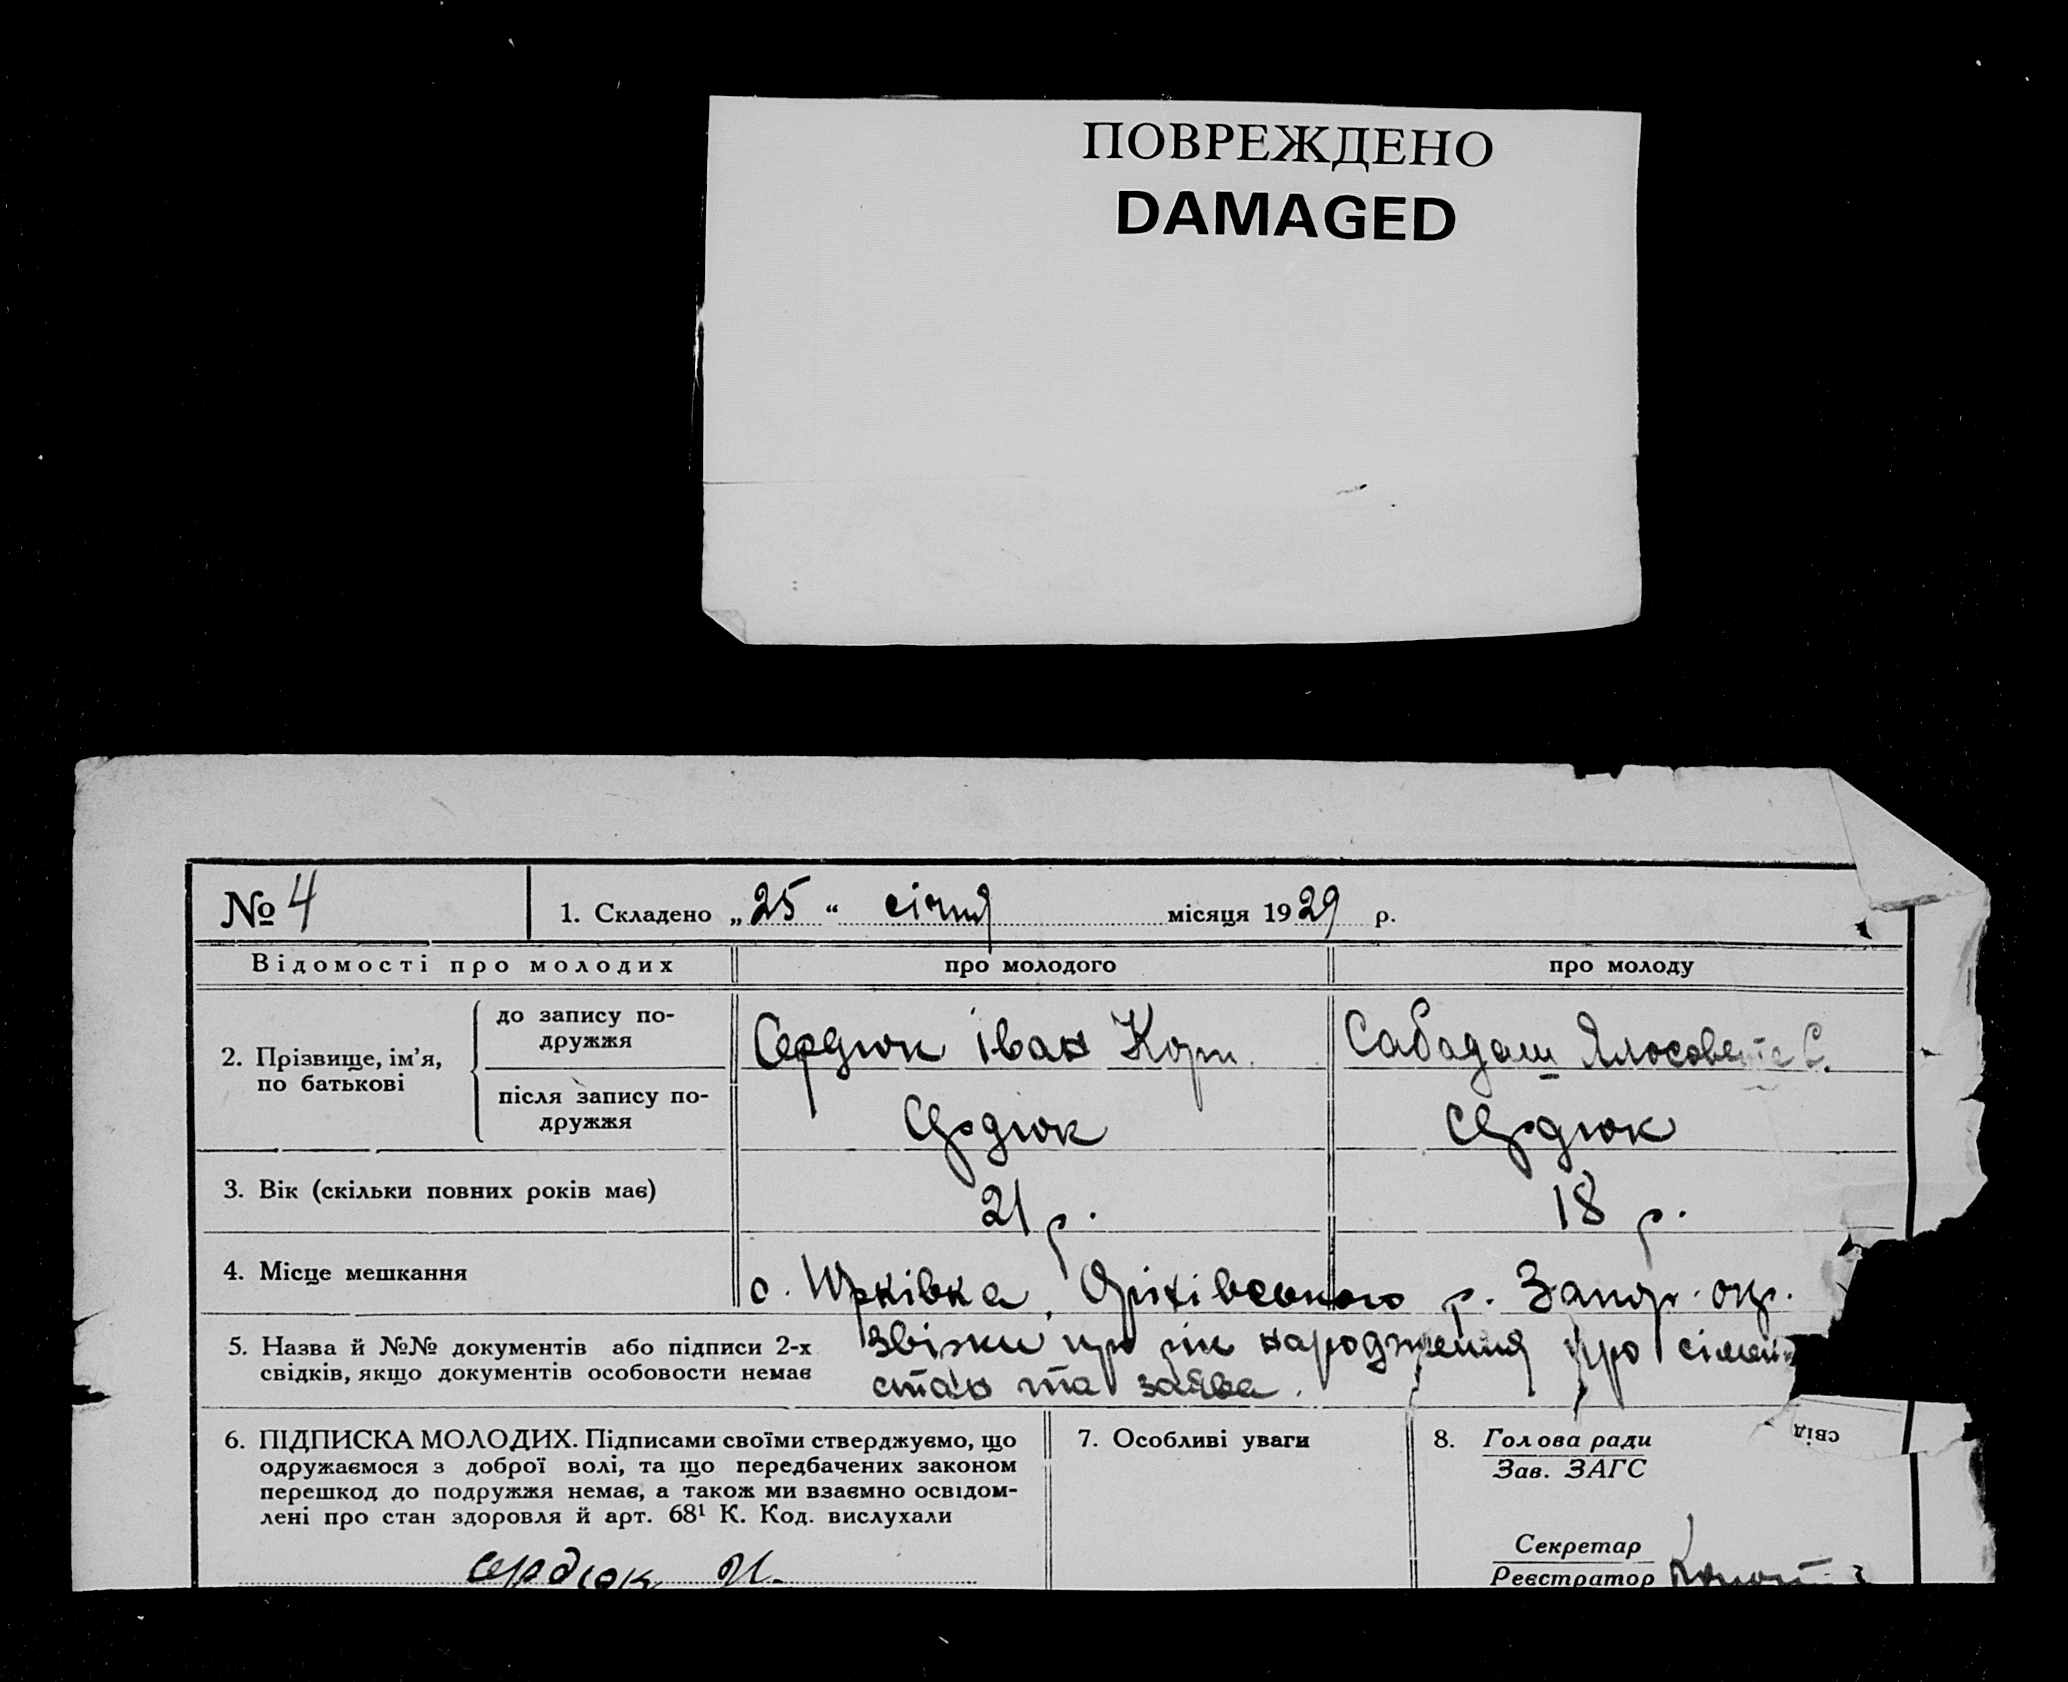 ПОВРЕЖДЕНО
DAMAGED
№ 4
1. Складено „25“ січня місяця 1929 р.
Відомості про молодих
про молодого
про молоду
2. Прізвище, ім'я, по батькові
до запису подружжя
Сердюк Іван Корн.
Сабадаш С.
після запису подружжя
Сердюк
Сердюк
3. Вік (скільки повних років має)
21 р.
18 р.
4. Місце мешкання
с. Юрківка, Оріхівського р. Запор. окр.
5. Назва й №№ документів або підписи 2-х
свідків, якщо документів особовости немає
звізки про рік народження про сімей
стан та заява.
6. ПІДПИСКА МОЛОДИХ. Підписами своїми стверджуємо, що
одружаємося з доброї волі, та що передбачених законом
перешкод до подружжя немає, а також ми взаємно освідом-
лені про стан здоровля й арт. 68¹ К. Код. вислухали
Сердюк И.
7. Особливі уваги
8. Голова ради
Зав. ЗАГС
свід
Секретар
Реєстратор